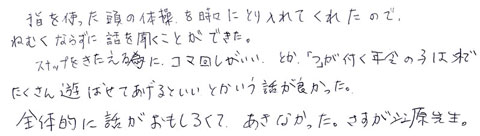 指を使った頭の体操を時々にとり入れてくれたので、
ねむくならずに話を聞くことができた。
スナップをきたえる為に、コマ回しがいい、とか、「つ」が付く年令の子は外で
たくさん遊ばせてあげるといいとかいう話が良かった。
全体的に話がおもしろくて、あきなかった。さすが 原先生。